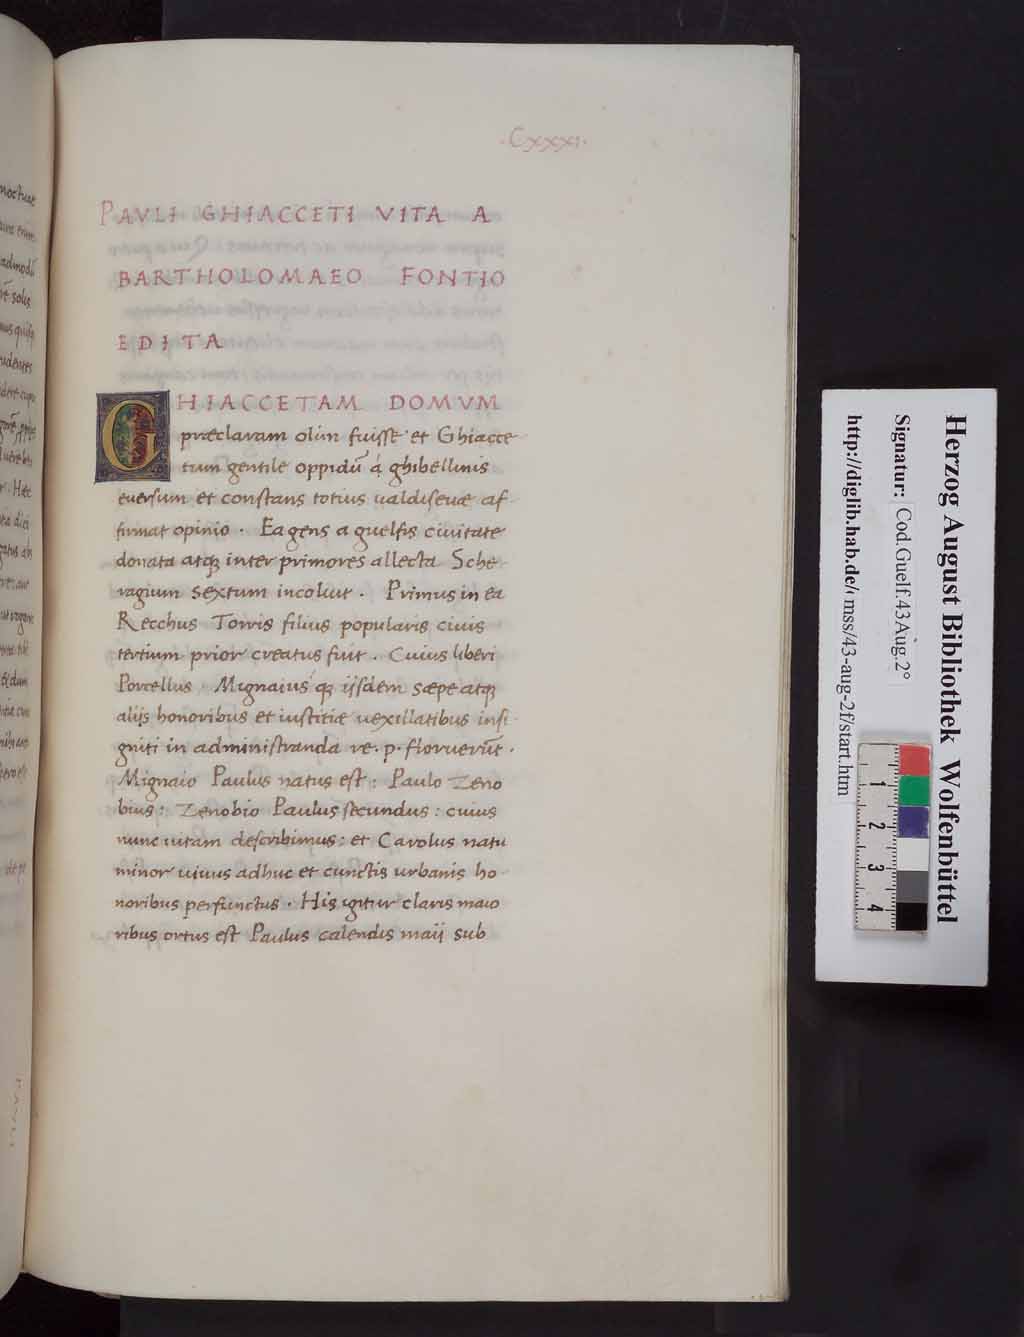 noctuae
admodū
solis
·Cxxxi·
PAVLI GHIACCETI VITA A
BARTHOLOMAEO FONTIO
EDITA
GHIACCETAM DOMVM
præclaram olim fuisse et Ghiacce
tum gentile oppidū á ghibellinis
euersum et constans totius ualdiseuæ af-
firmat opinio . Ea gens a guelfis ciuitate
donata atq; inter primores allecta Sche-
ragium sextum incoluit . Primus in ea
Recchus Torris filius popularis ciuis
tertium prior creatus fuit . Cuius liberi
Porcellus, Mignaius q; ijsdem sæpe atq;
alijs honoribus et iustitiæ uexillatibus insi-
gniti in administranda re. p. floruerūt .
Mignaio Paulus natus est : Paulo Zeno
bius : Zenobio Paulus secundus : cuius
nunc uitam describimus : et Carolus natu
minor uiuus adhuc et cunctis urbanis ho-
noribus perfunctus . His igitur claris maio
ribus ortus est Paulus calendis maij sub
Herzog August Bibliothek Wolfenbüttel
Signatur: Cod.Guelf.43 Aug.2°
http://diglib.hab.de/ mss/43-aug-2f/start.htm
1
2
3
4